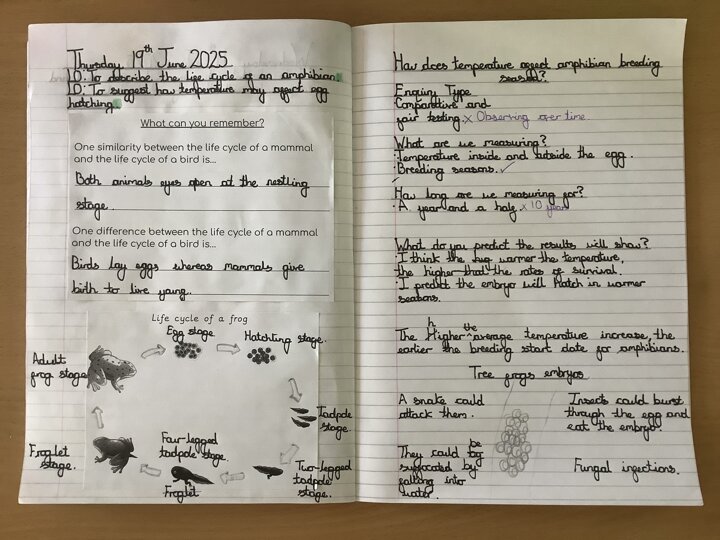 Thursday 19th June 2025
LO: To describe the life cycle of an amphibian.
LO: To suggest how temperature may affect egg
hatching.
What can you remember?
One similarity between the life cycle of a mammal
and the life cycle of a bird is...
Both animals eyes open at the nestling
stage.
One difference between the life cycle of a mammal
and the life cycle of a bird is...
Birds lay eggs whereas mammals give
birth to live young.
Life cycle of a frog
Egg stage
Hatchting stage.
Adult
frog stage
Tadpole
stage.
Four-legged
tadpole stage.
Froglet
stage.
Two-legged
tadpole
stage.
Froglet
How does temperature affect amphibian breeding
season?
Enquiry Type
Comparative and
fair testing. x Observing over time
What are we measuring?
Temperature inside and outside the egg.
Breeding seasons. ✓
How long are we measuring for?
A year and a half. x 10 years
What do you predict the results will show?
I think the warmer the temperature,
the higher that the rates of survival.
I predict the embryo will hatch in warmer
seasons.
The Higher the average temperature increase, the
earlier the breeding start date for amphibians.
Tree frogs embryos
A snake could
attack them.
Insects could burst
through the egg and
eat the embryo.
They could be
suffocated by
falling into
water.
Fungal infections.